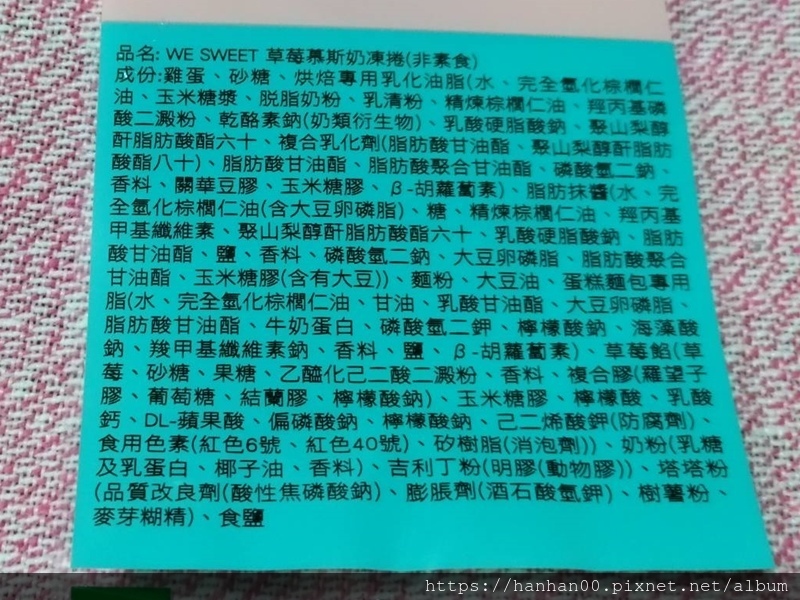 品名: WE SWEET 草莓慕斯奶凍捲(非素食)
成份:雞蛋、砂糖、烘焙專用乳化油脂(水、完全氫化棕櫚仁
油、玉米糖漿、脫脂奶粉、乳清粉、精煉棕櫚仁油、羥丙基磷
酸二澱粉、乾酪素鈉(奶類衍生物)、乳酸硬脂酸鈉、聚山梨醇
酐脂肪酸酯六十、複合乳化劑(脂肪酸甘油酯、聚山梨醇酐脂肪
酸酯八十)、脂肪酸甘油酯、脂肪酸聚合甘油酯、磷酸氫二鈉、
香料、關華豆膠、玉米糖膠、β-胡蘿蔔素)、脂肪抹醬(水、完
全氫化棕櫚仁油(含大豆卵磷脂)、糖、精煉棕櫚仁油、羥丙基
甲基纖維素、聚山梨醇酐脂肪酸酯六十、乳酸硬脂酸鈉、脂肪
酸甘油酯、鹽、香料、磷酸氫二鈉、大豆卵磷脂、脂肪酸聚合
甘油酯、玉米糖膠(含有大豆))、麵粉、大豆油、蛋糕麵包專用
脂(水、完全氫化棕櫚仁油、甘油、乳酸甘油酯、大豆卵磷脂、
脂肪酸甘油酯、牛奶蛋白、磷酸氫二鉀、檸檬酸鈉、海藻酸
鈉、羧甲基纖維素鈉、香料、鹽、β-胡蘿蔔素)、草莓餡(草
莓、砂糖、果糖、乙醯化己二酸二澱粉、香料、複合膠(羅望子
膠、葡萄糖、結蘭膠、檸檬酸鈉)、玉米糖膠、檸檬酸、乳酸
鈣、DL-蘋果酸、偏磷酸鈉、檸檬酸鈉、己二烯酸鉀(防腐劑)、
食用色素(紅色6號、紅色40號)、矽樹脂(消泡劑))、奶粉(乳糖
及乳蛋白、椰子油、香料)、吉利丁粉(明膠(動物膠))、塔塔粉
(品質改良劑(酸性焦磷酸鈉)、膨脹劑(酒石酸氫鉀)、樹薯粉、
麥芽糊精)、食鹽
https://hanhan00.pixnet.net/album